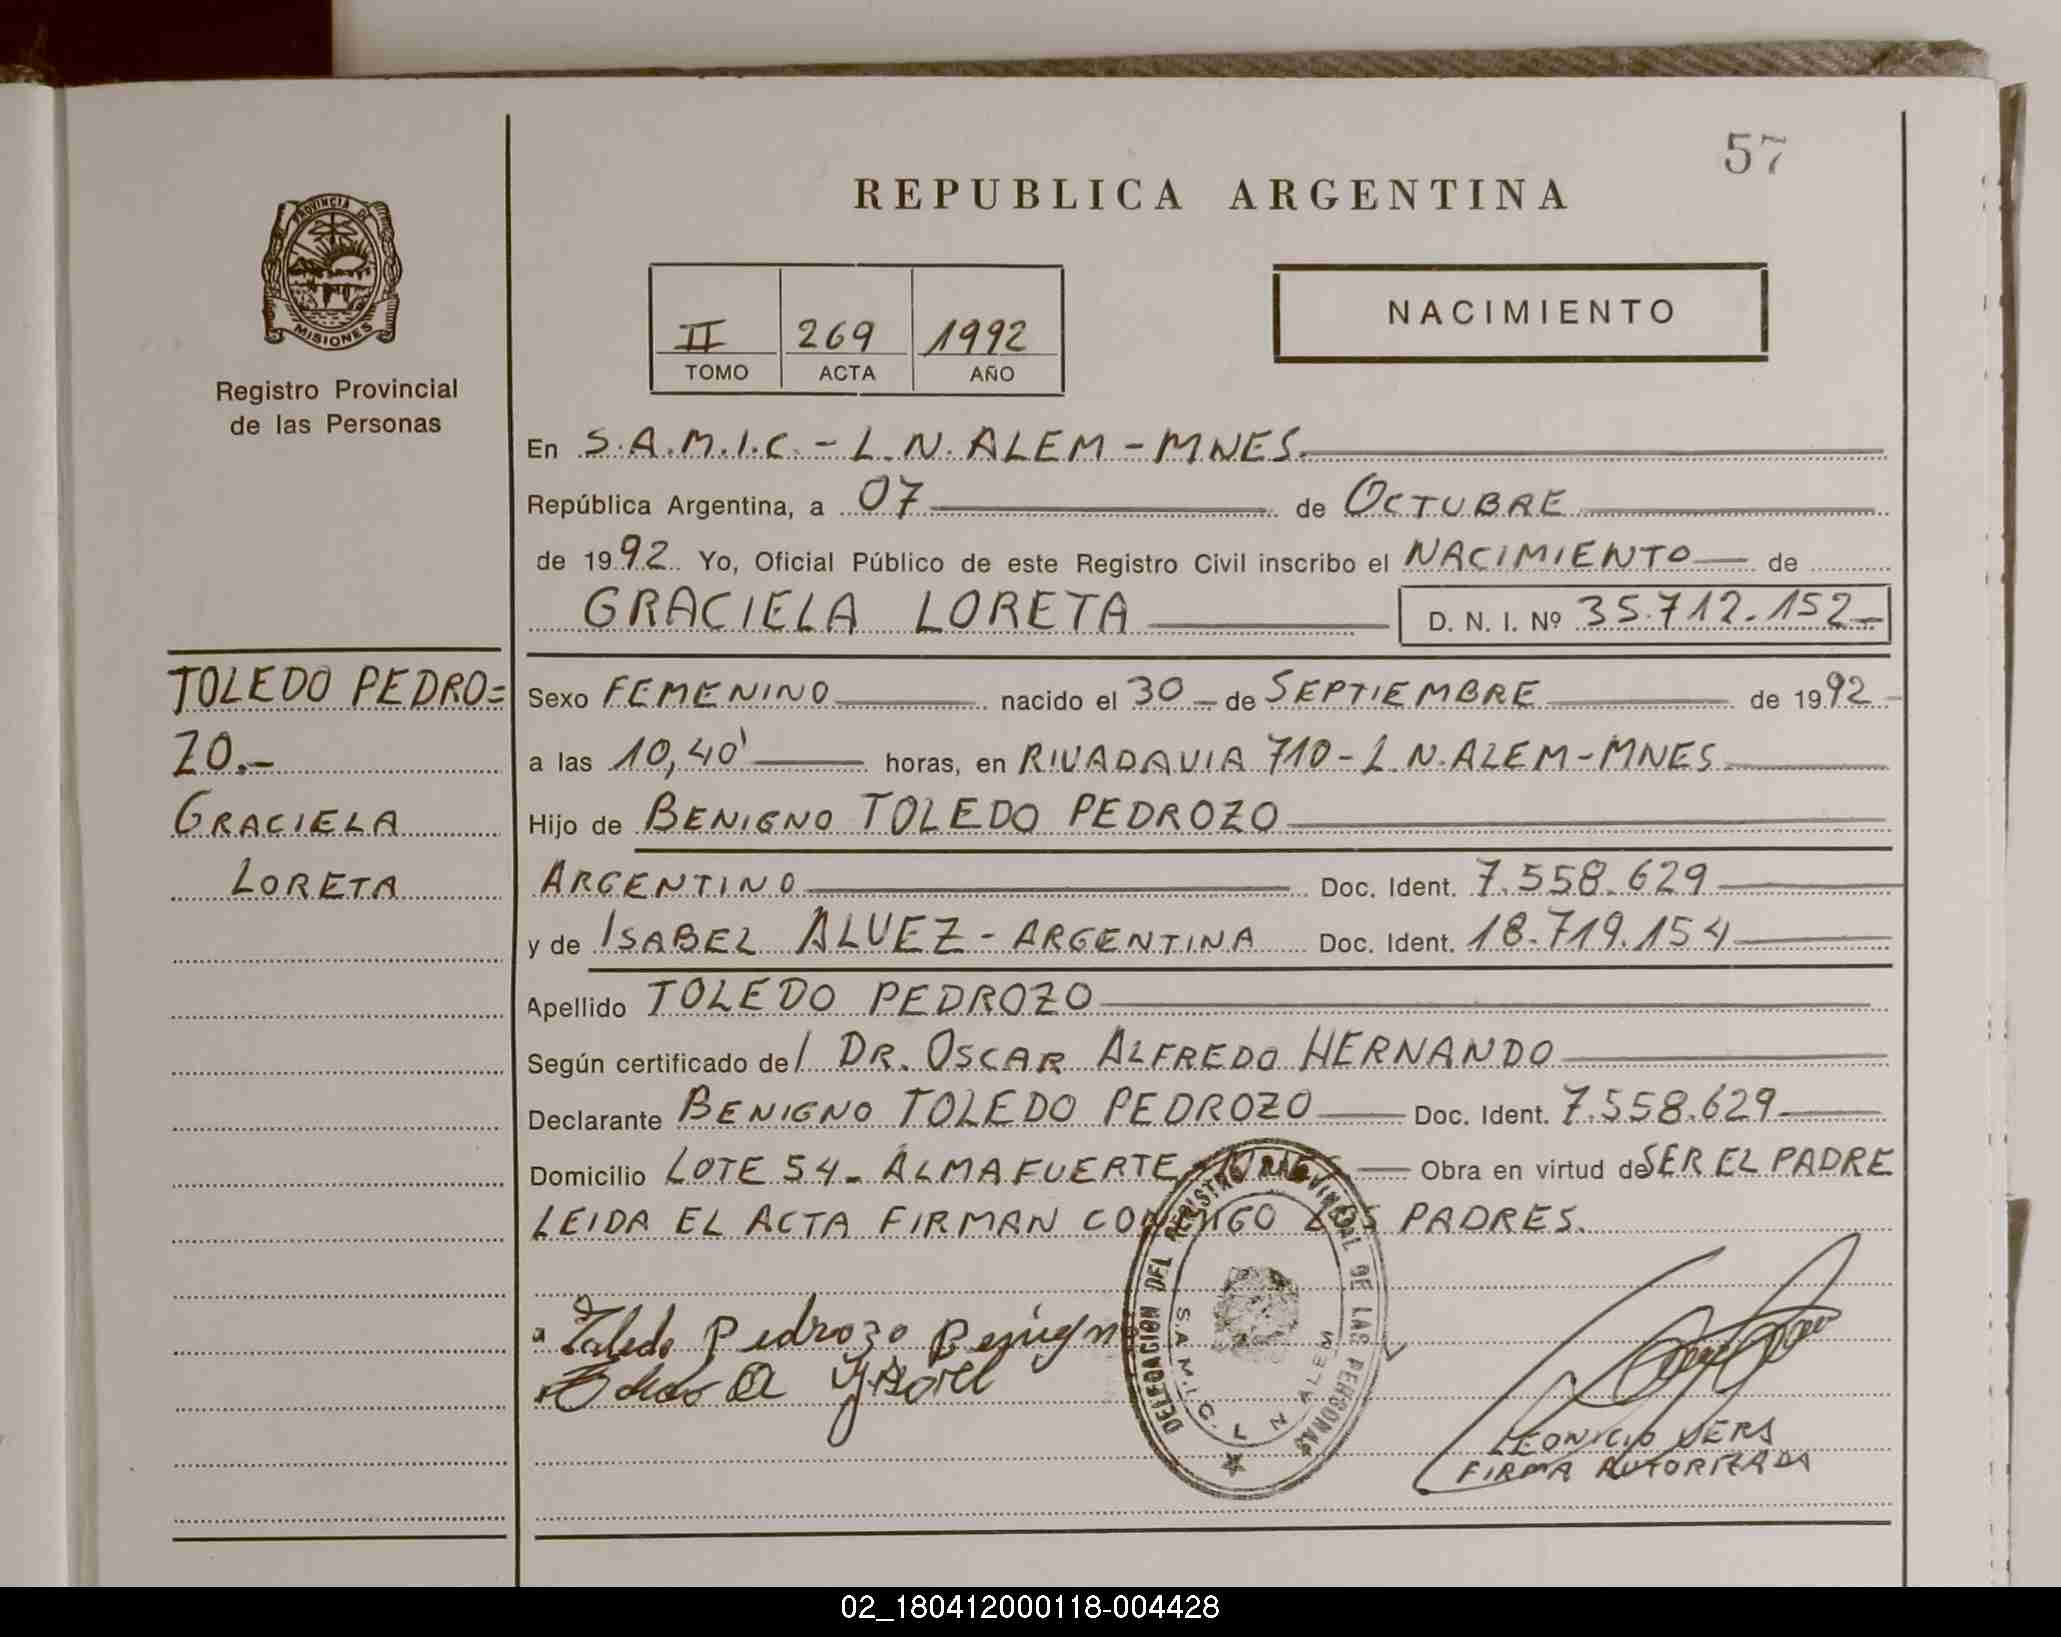 57
REPUBLICA ARGENTINA
PROVINCIA DE
MISIONES
Registro Provincial
de las Personas
II 269 1992
TOMO ACTA AÑO
NACIMIENTO
En S.A.M.I.C. - L.N. ALEM - MNES.
República Argentina, a 07 de OCTUBRE
de 1992. Yo, Oficial Público de este Registro Civil inscribo el NACIMIENTO de
GRACIELA LORETA D. N. I. Nº 35.712.152
TOLEDO PEDRO=
ZO.-
GRACIELA
LORETA
Sexo FEMENINO nacido el 30 de SEPTIEMBRE de 1992
a las 10,40' horas, en RIVADAVIA 710 - L.N. ALEM - MNES
Hijo de BENIGNO TOLEDO PEDROZO
ARGENTINO Doc. Ident. 7.558.629
y de ISABEL ALVEZ - ARGENTINA Doc. Ident. 18.719.154
Apellido TOLEDO PEDROZO
Según certificado de / DR. OSCAR ALFREDO HERNANDO
Declarante BENIGNO TOLEDO PEDROZO Doc. Ident. 7.558.629
Domicilio LOTE 54 - ALMAFUERTE - MNES Obra en virtud de SER EL PADRE
LEIDA EL ACTA FIRMAN CONMIGO LOS PADRES.
Toledo Pedrozo Benigno
DELEGACION DEL REGISTRO PROVINCIAL DE LAS PERSONAS
S.A.M.I.C. L N ALEM
FIRMA AUTORIZADA
02_180412000118-004428